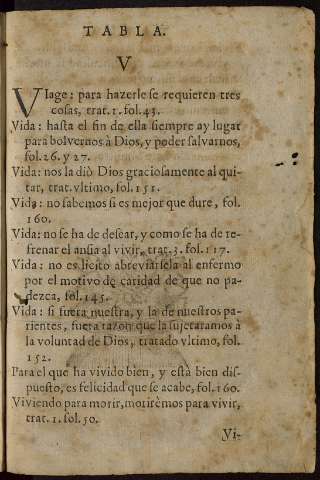 TABLA.
V
VIage: para hazerle se requieren tres
cosas, trat. 1. fol. 43.
Vida: hasta el fin de ella siempre ay lugar
para bolvernos à Dios, y poder salvarnos,
fol. 26. y 27.
Vida: nos la diò Dios graciosamente al qui-
tar, trat. vltimo, fol. 151.
Vida: no sabemos si es mejor que dure, fol.
160.
Vida: no se ha de desear, y como se ha de re-
frenar el ansia al vivir, trat. 3. fol. 117.
Vida: no es licito abreviarsela al enfermo
por el motivo de caridad de que no pa-
dezca, fol. 145.
Vida: si fuera nuestra, y la de nuestros pa-
rientes, fuera razon que la sujetaramos à
la voluntad de Dios, tratado vltimo, fol.
152.
Para el que ha vivido bien, y està bien dis-
puesto, es felicidad que se acabe, fol. 160.
Viviendo para morir, morirèmos para vivir,
trat. 1. fol. 50.
Vi-